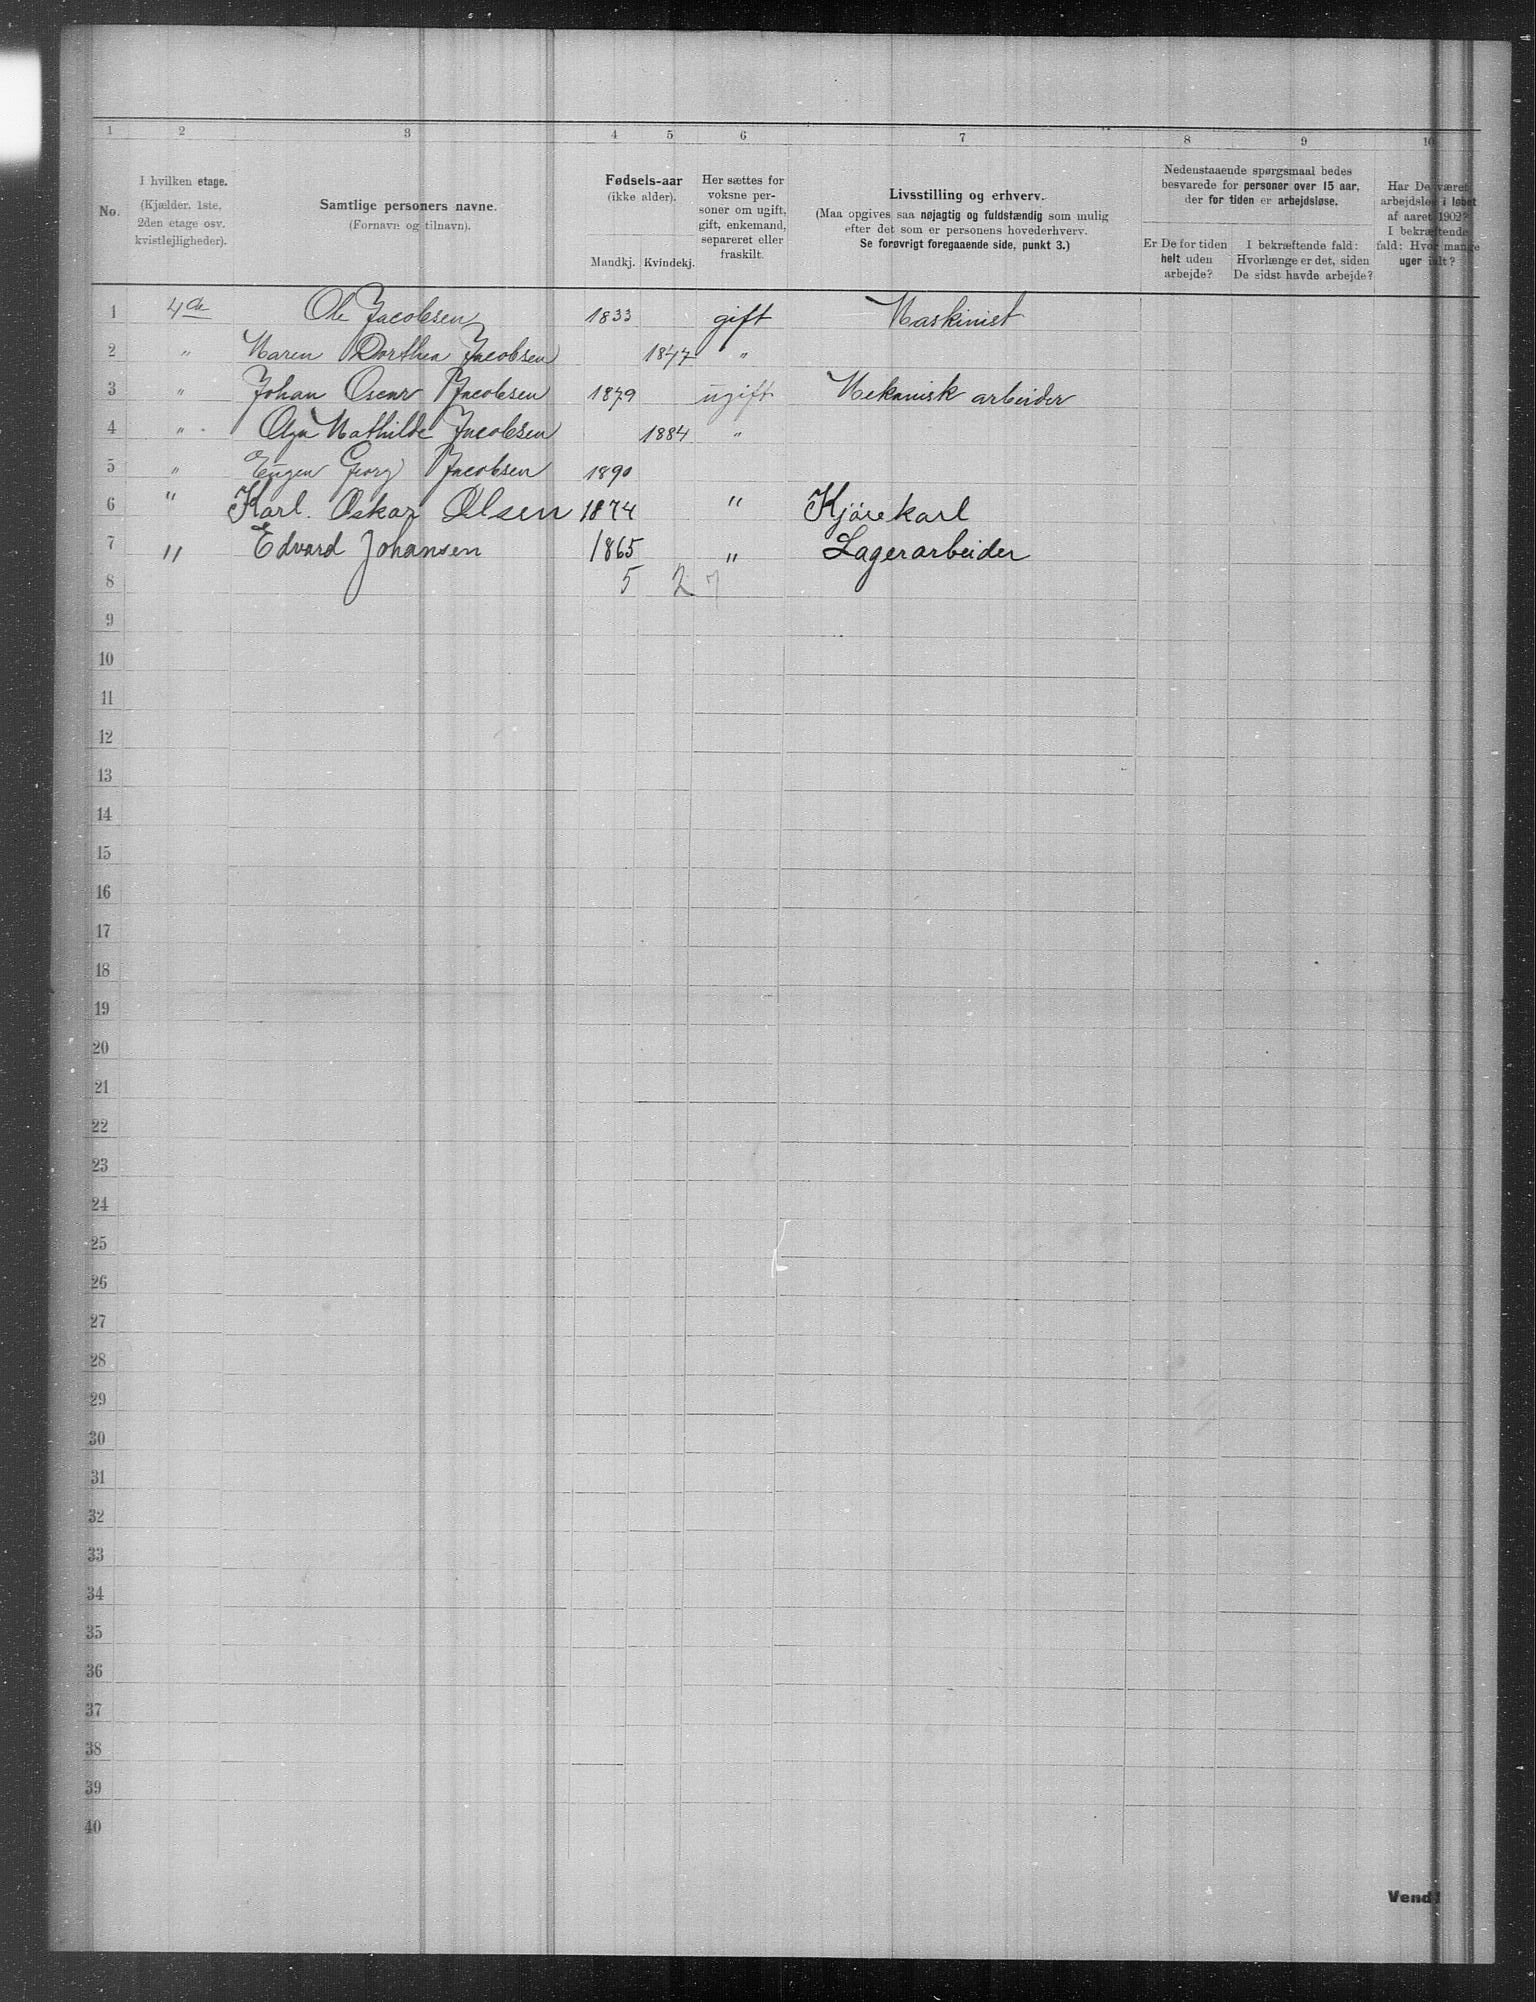 1 2 3 4 5 6 7 8 9 10
No.
I hvilken etage.
(Kjælder, 1ste,
2den etage osv.
kvistlejligheder).
Samtlige personers navne.
(Fornavn og tilnavn).
Fødsels-aar
(ikke alder).
Mandkj. Kvindekj.
Her sættes for
voksne per-
soner om ugift,
gift, enkemand,
separeret eller
fraskilt.
Livsstilling og erhverv.
(Maa opgives saa nøjagtig og fuldstændig som mulig
efter det som er personens hovederhverv.
Se forøvrigt foregaaende side, punkt 3.)
Nedenstaaende spørgsmaal bedes
besvarede for personer over 15 aar,
der for tiden er arbejdsløse.
Er De for tiden
helt uden
arbejde?
I bekræftende fald:
Hvorlænge er det, siden
De sidst havde arbejde?
Har De været
arbejdsløs i løbet
af aaret 1902?
I bekræftende
fald: Hvor mange
uger ialt?
1 4de Ole Jacobsen 1833 gift Maskinist
2 " Maren Dorthea Jacobsen 1847 "
3 " Johan Oscar Jacobsen 1879 ugift Mekanisk arbeider
4 " Olga Mathilde Jacobsen 1884 "
5 " Eugen Georg Jacobsen 1890
6 " Karl Oskar Olsen 1874 " Kjørekarl
7 " Edvard Johansen 1865 " Lagerarbeider
8 5 2 7
9
10
11
12
13
14
15
16
17
18
19
20
21
22
23
24
25
26
27
28
29
30
31
32
33
34
35
36
37
38
39
40
Vend!